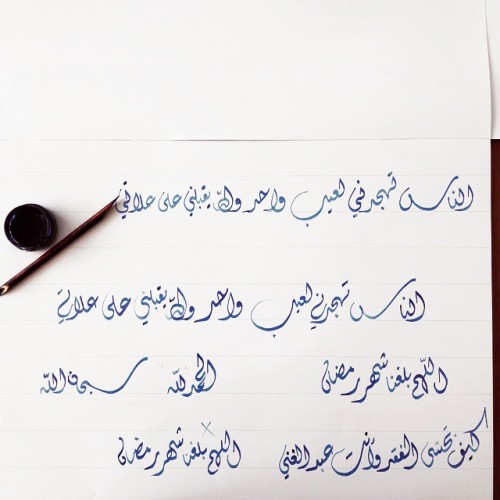 الناس تهجرني لعيب واحد والله يقبلني على علاتي
الناس تهجرني لعيب واحد والله يقبلني على علاتي
اللهم بلغنا شهر رمضان الحمد لله سبحان الله
كيف تخشى الفقر وأنت عبد الغني اللهم بلغنا شهر رمضان